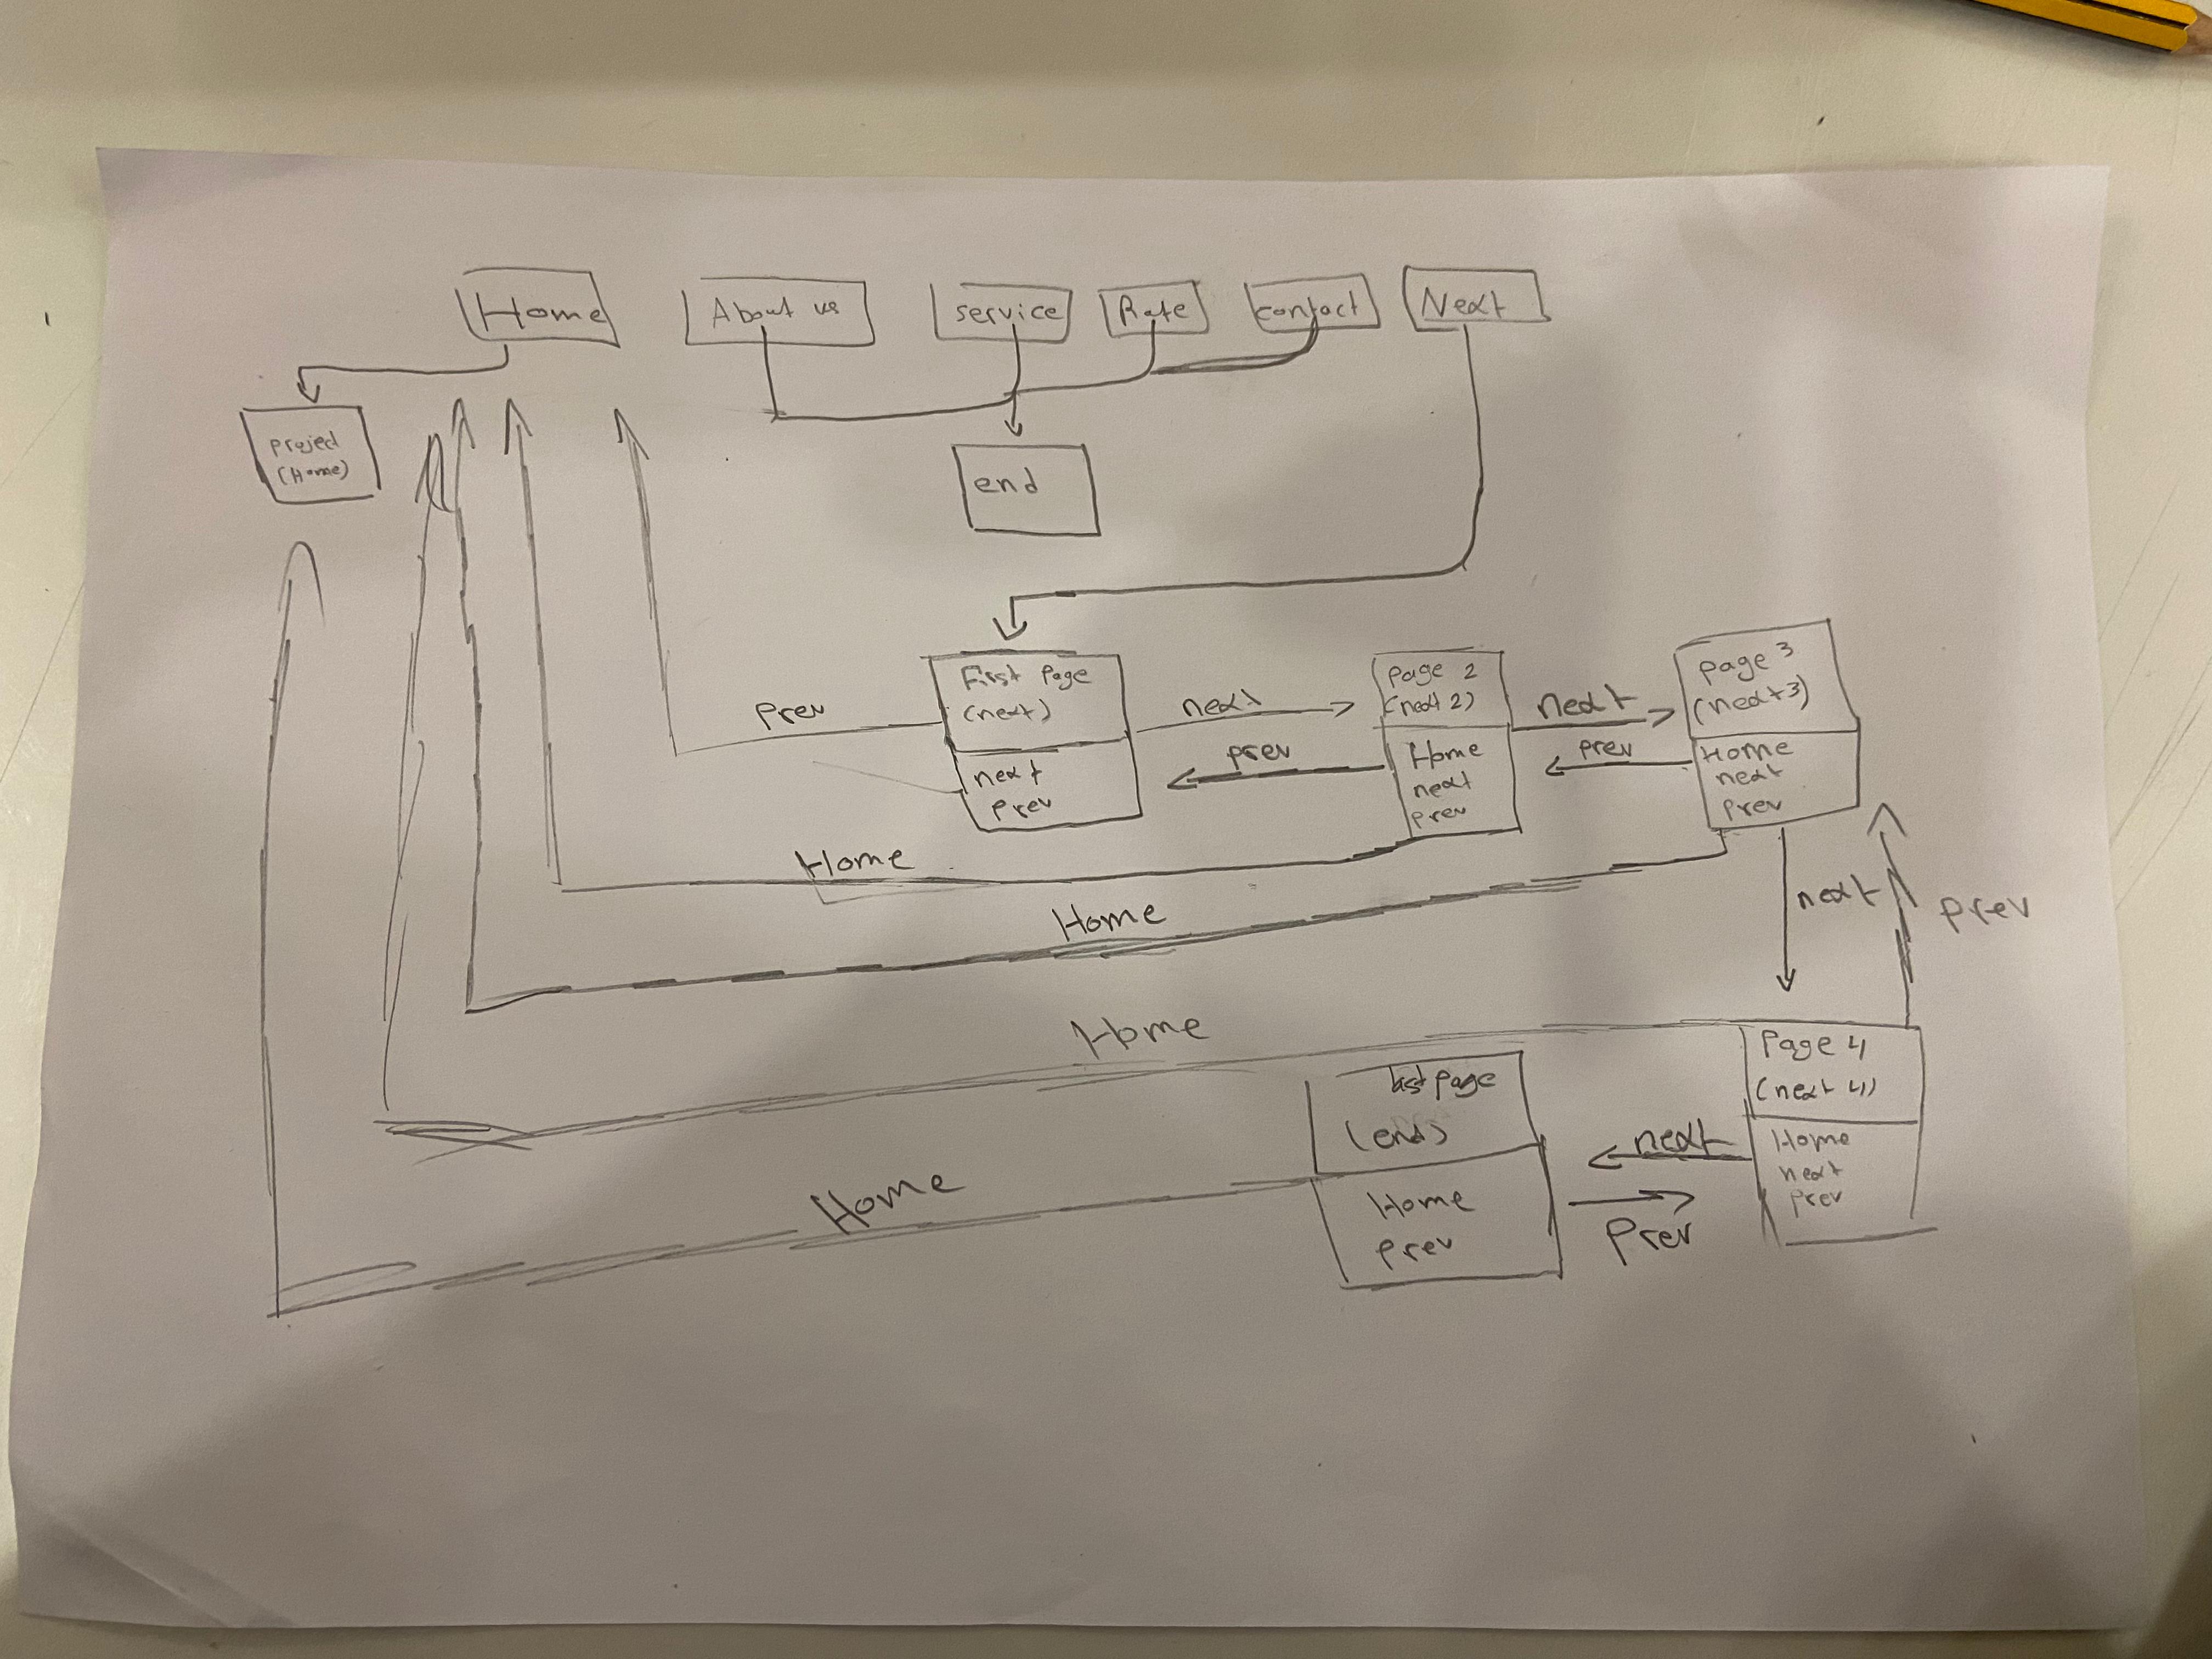 Home
About us
service
Rate
contact
Next
project
(Home)
end
First Page
(next)
next
prev
prev
next
prev
page 2
(next 2)
Home
next
prev
next
prev
page 3
(next3)
Home
next
prev
Home
Home
next
prev
Home
Page 4
(next 4)
Home
next
prev
last page
(end)
Home
prev
next
prev
Home